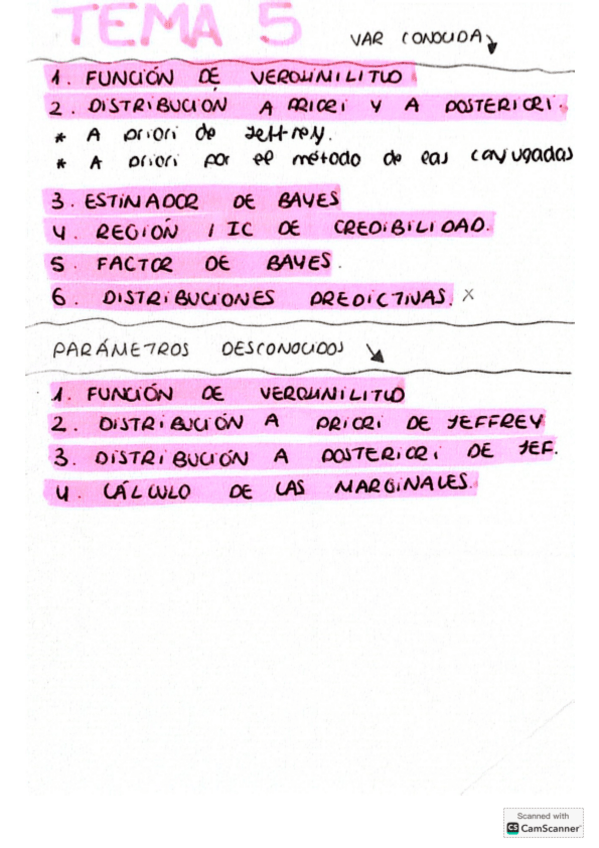 TEMA 5
VAR CONOCIDA
1. FUNCIÓN DE VEROSIMILITUD
2. DISTRIBUCIÓN A PRIORI Y A POSTERIORI.
* A priori de Jeffrey.
* A priori por el método de las conjugadas
3. ESTIMADOR DE BAYES
4. REGIÓN / IC DE CREDIBILIDAD.
5. FACTOR DE BAYES.
6. DISTRIBUCIONES PREDICTIVAS. X
PARÁMETROS DESCONOCIDOS
1. FUNCIÓN DE VEROSIMILITUD
2. DISTRIBUCIÓN A PRIORI DE JEFFREY
3. DISTRIBUCIÓN A POSTERIORI DE JEF.
4. CÁLCULO DE LAS MARGINALES.
Scanned with
CS CamScanner